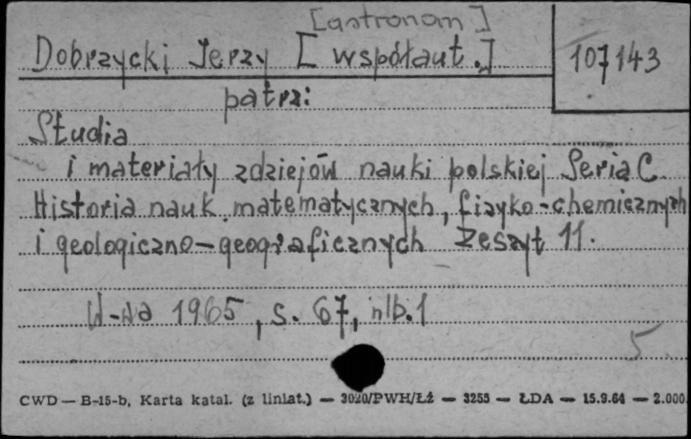 [astronom]
Dobrzycki Jerzy [współaut.] 107143
patrz:
Studia
i materiały z dziejów nauki polskiej Seria C.
Historia nauk matematycznych, fizyko-chemicznych
i geologiczno-geograficznych Zeszyt 11.
W-wa 1965, s. 67, nlb. 1
5
CWD — B-15-b, Karta katal. (z liniat.) — 3020/PWH/Łż — 3255 — ŁDA — 15.9.64 — 2.000